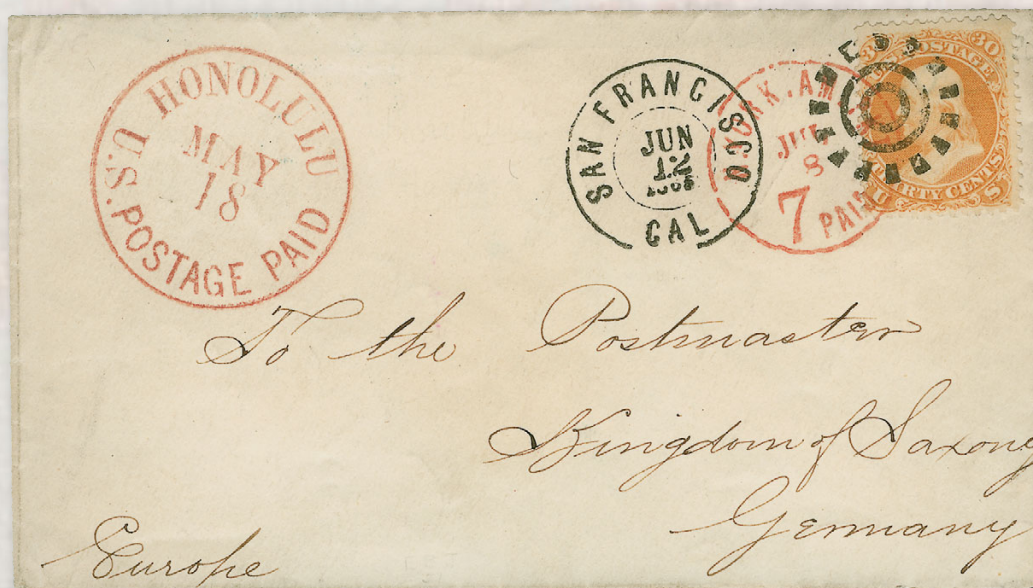 HONOLULU
MAY
18
U.S. POSTAGE PAID
SAN FRANCISCO
JUN
12
CAL
YORK. AM
8
7
PAID
30
POSTAGE
30
THIRTY CENTS
U S
To the Postmaster
Kingdom of Saxony
Germany
Europe